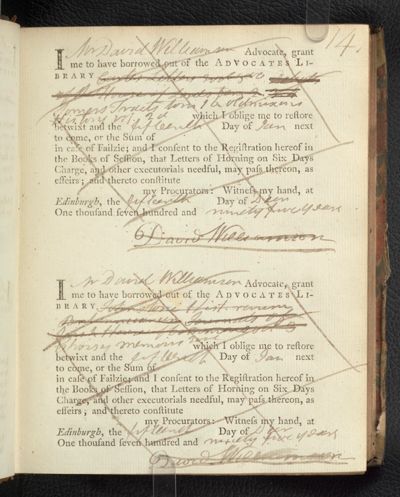 14.
I Mr David Williamson Advocate, grant
me to have borrowed out of the ADVOCATES LI-
BRARY
Somers Tracts
History Vol. 2d which I oblige me to restore
betwixt and the fifteenth Day of Jan next
to come, or the Sum of
in case of Failzie; and I consent to the Registration hereof in
the Books of Session, that Letters of Horning on Six Days
Charge, and other executorials needful, may pass thereon, as
effeirs; and thereto constitute
my Procurators: Witness my hand, at
Edinburgh, the fifteenth Day of
One thousand seven hundred and ninety five years
David Williamson
I Mr David Williamson Advocate, grant
me to have borrowed out of the ADVOCATES LI-
BRARY
memoirs which I oblige me to restore
betwixt and the fifteenth Day of Jan next
to come, or the Sum of
in case of Failzie; and I consent to the Registration hereof in
the Books of Session, that Letters of Horning on Six Days
Charge, and other executorials needful, may pass thereon, as
effeirs; and thereto constitute
my Procurators: Witness my hand, at
Edinburgh, the fifteenth Day of
One thousand seven hundred and ninety five years
David Williamson